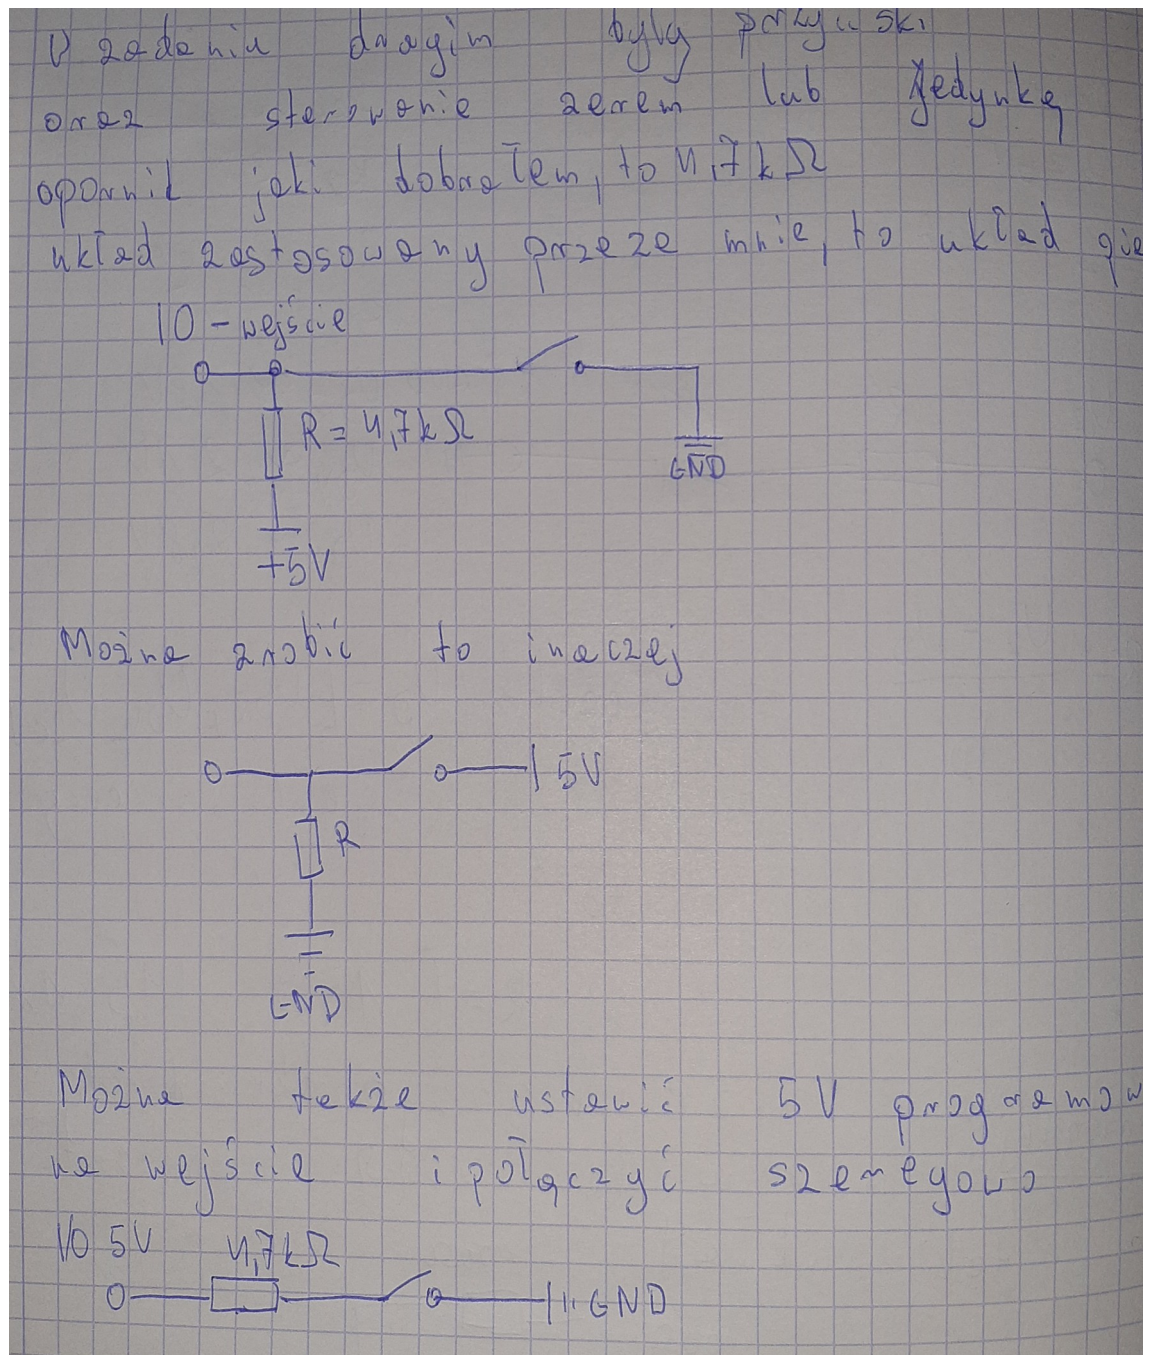 W zadaniu drugim były przyciski
oraz sterowanie zerem lub jedynką
opornik jaki dobrałem, to 4,7kΩ
układ zastosowany przeze mnie, to układ
IO - wejście
R = 4,7kΩ
GND
+5V
Można zrobić to inaczej
5V
R
GND
Można także ustawić 5V programow
na wejście i połączyć szeregowo
IO 5V 4,7kΩ
GND